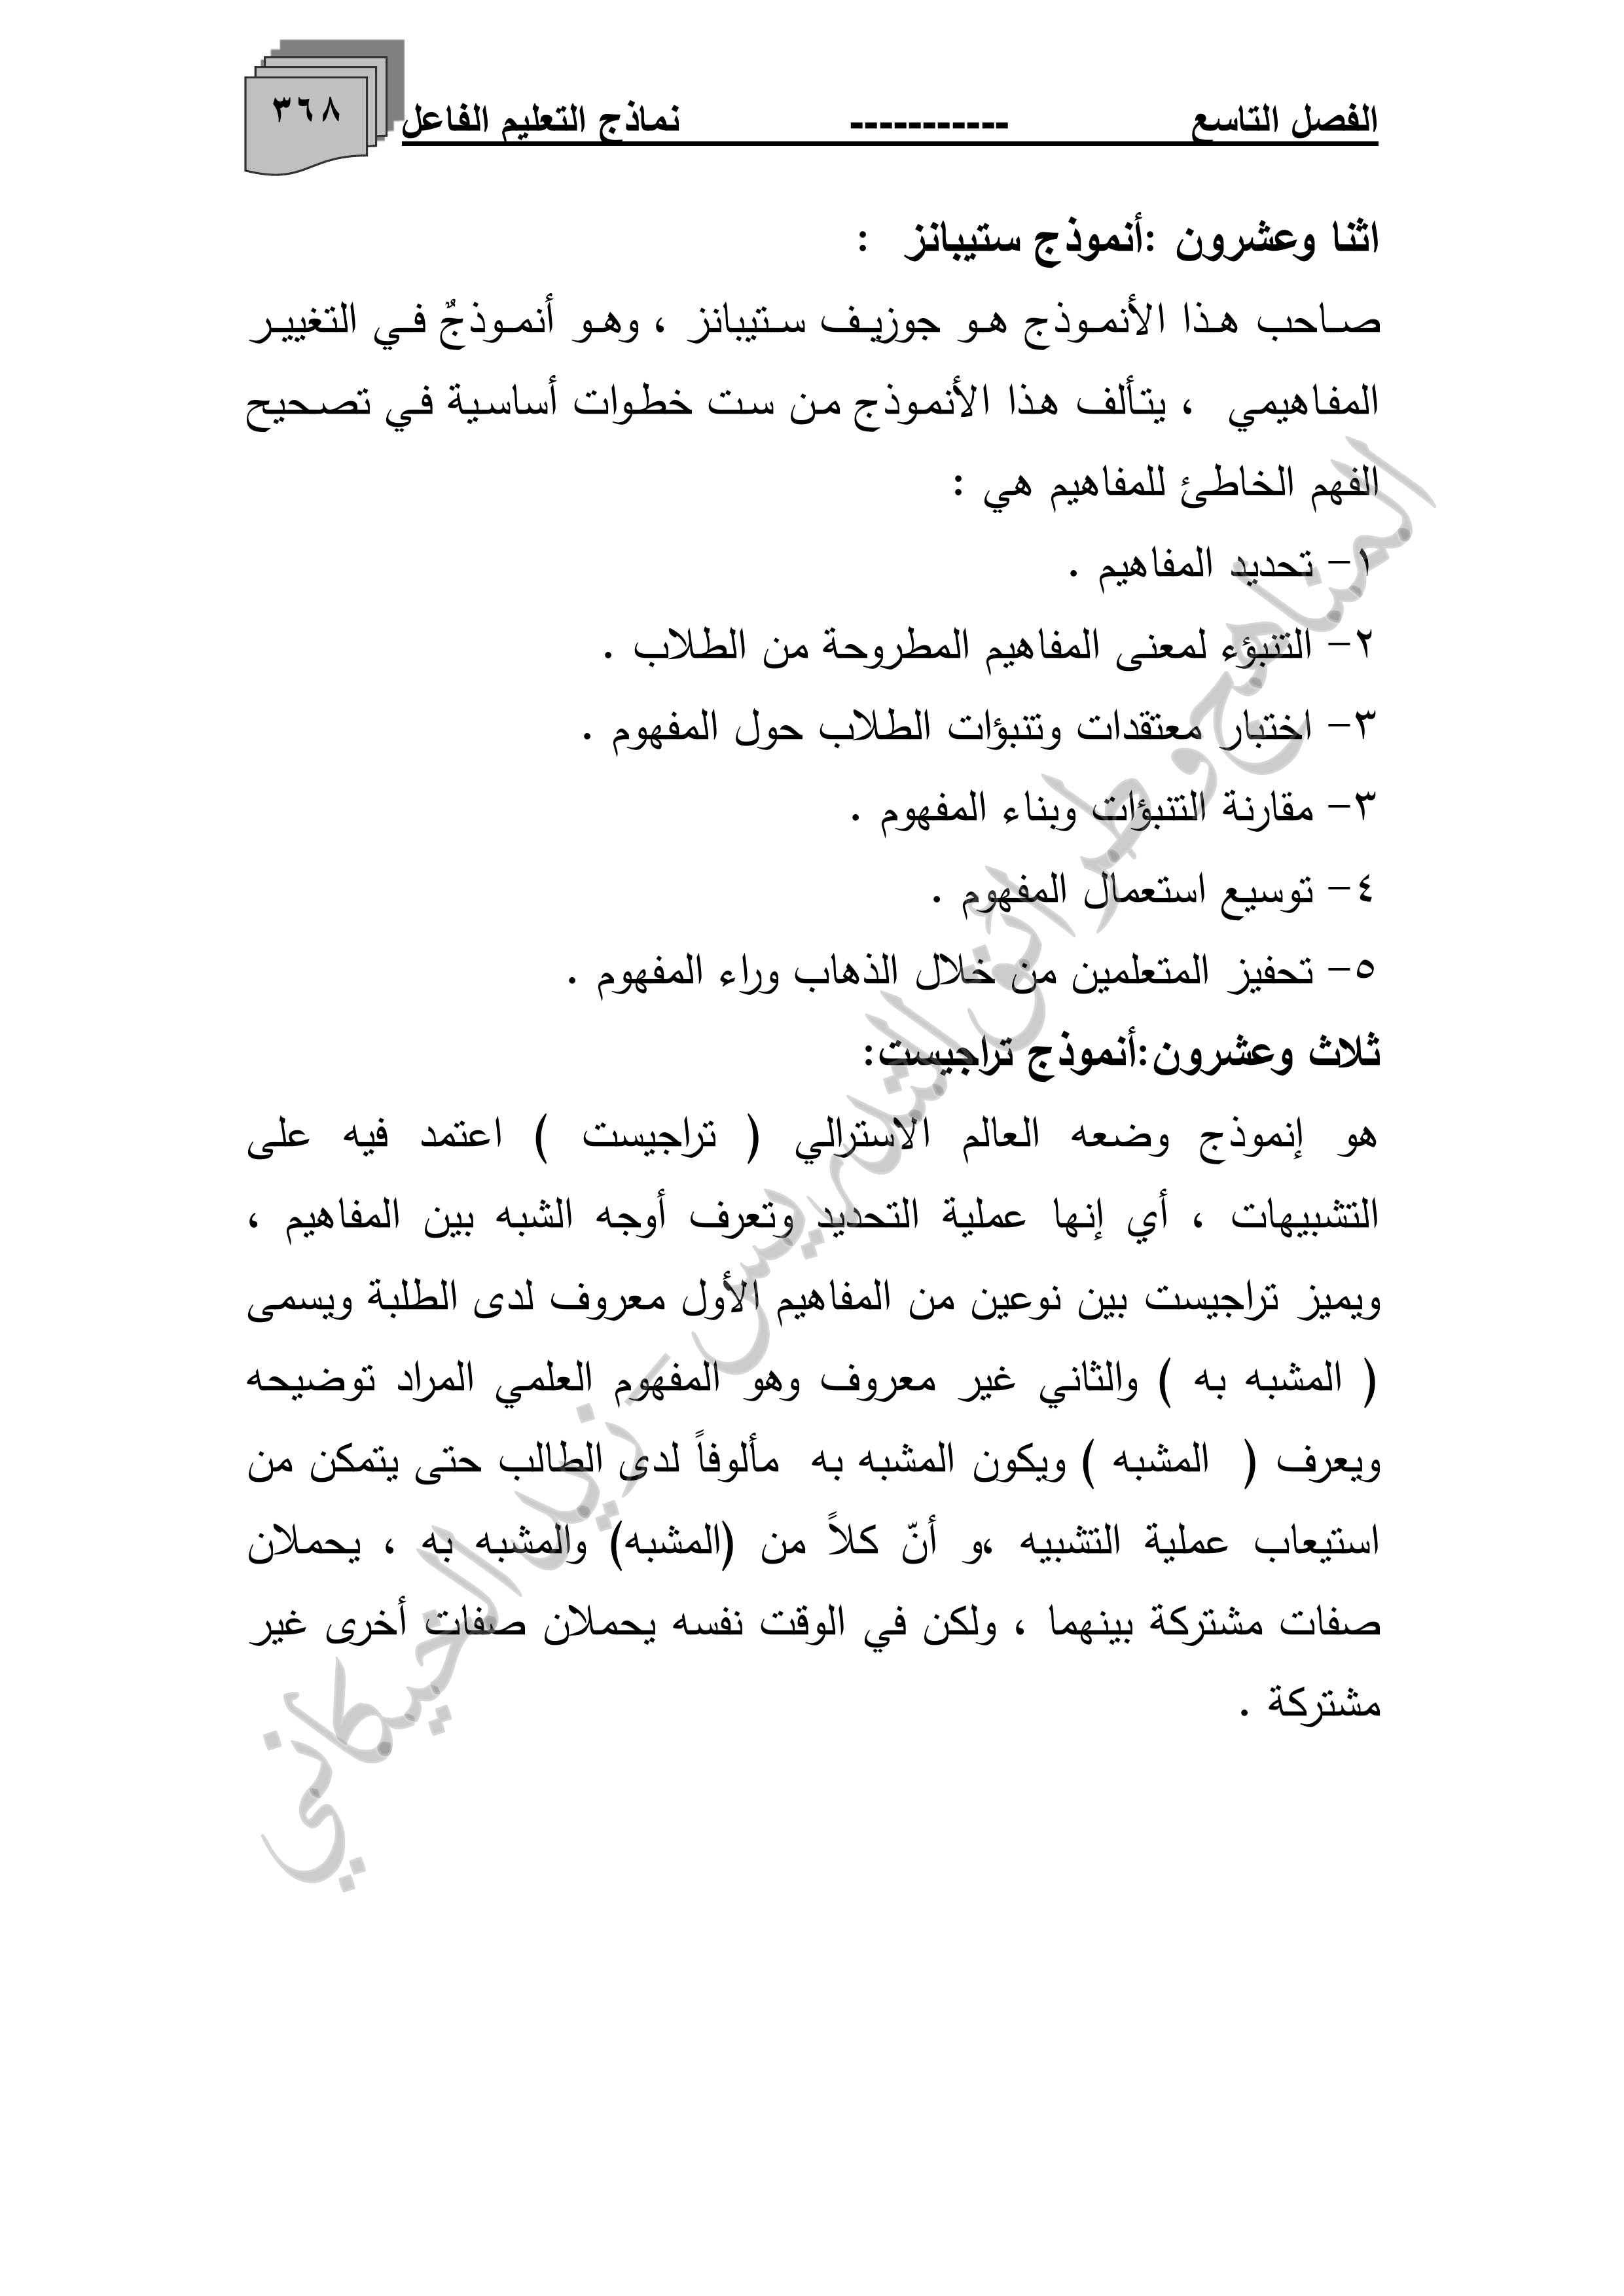 الفصل التاسع ----------- نماذج التعليم الفاعل ٣٦٨
اثنا وعشرون :أنموذج ستيبانز :
صاحب هذا الأنموذج هو جوزيف ستيبانز ، وهو أنموذجٌ في التغيير
المفاهيمي ، يتألف هذا الأنموذج من ست خطوات أساسية في تصحيح
الفهم الخاطئ للمفاهيم هي :
١- تحديد المفاهيم .
٢- التنبؤء لمعنى المفاهيم المطروحة من الطلاب .
٣- اختبار معتقدات وتنبؤات الطلاب حول المفهوم .
٣- مقارنة التنبؤات وبناء المفهوم .
٤- توسيع استعمال المفهوم .
٥- تحفيز المتعلمين من خلال الذهاب وراء المفهوم .
ثلاث وعشرون:أنموذج تراجيست:
هو إنموذج وضعه العالم الاسترالي ( تراجيست ) اعتمد فيه على
التشبيهات ، أي إنها عملية التحديد وتعرف أوجه الشبه بين المفاهيم ،
ويميز تراجيست بين نوعين من المفاهيم الأول معروف لدى الطلبة ويسمى
( المشبه به ) والثاني غير معروف وهو المفهوم العلمي المراد توضيحه
ويعرف ( المشبه ) ويكون المشبه به مألوفاً لدى الطالب حتى يتمكن من
استيعاب عملية التشبيه ،و أنّ كلاً من (المشبه) والمشبه به ، يحملان
صفات مشتركة بينهما ، ولكن في الوقت نفسه يحملان صفات أخرى غير
مشتركة .
المناهج وطرائق التدريس - زيد الخيكاني